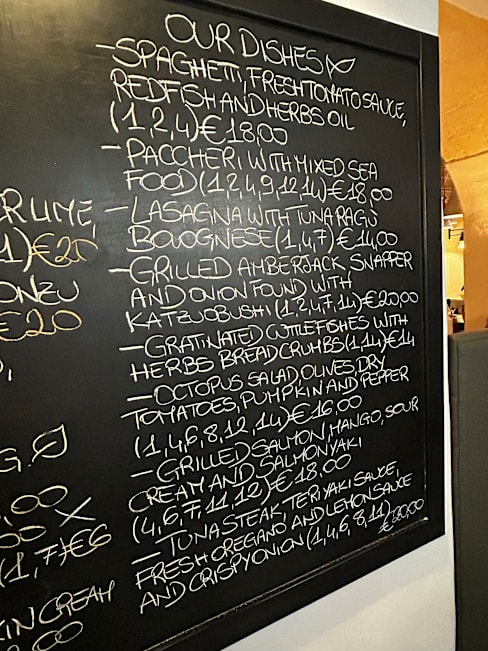 OUR DISHES
- SPAGHETTI, FRESH TOMATO SAUCE,
REDFISH AND HERBS OIL
(1,2,4) € 18,00
- PACCHERI WITH MIXED SEA
FOOD (1,2,4,9,12,14) € 18,00
- LASAGNA WITH TUNA RAGÙ
BOLOGNESE (1,4,7) € 14,00
- GRILLED AMBERJACK, SNAPPER
AND ONION FOUND WITH
KATZUOBUSHI (1,2,4,7,14) € 20,00
- GRATINATED CUTTLEFISHES WITH
HERBS BREADCRUMBS (1,14) € 14
- OCTOPUS SALAD, OLIVES, DRY
TOMATOES, PUMPKIN AND PEPPER
(1,4,6,8,12,14) € 16,00
- GRILLED SALMON, MANGO, SOUR
CREAM AND SALMONYAKI
(4,6,7,11,12) € 18,00
- TUNA STEAK, TERIYAKI SAUCE,
FRESH OREGANO AND LEMON SAUCE
AND CRISPY ONION (1,4,6,8,11)
€ 20,00
R LIME,
1) € 20
ONZU
€ 20
G.
,00
00
(1,7) € 6
KIN CREAM
00